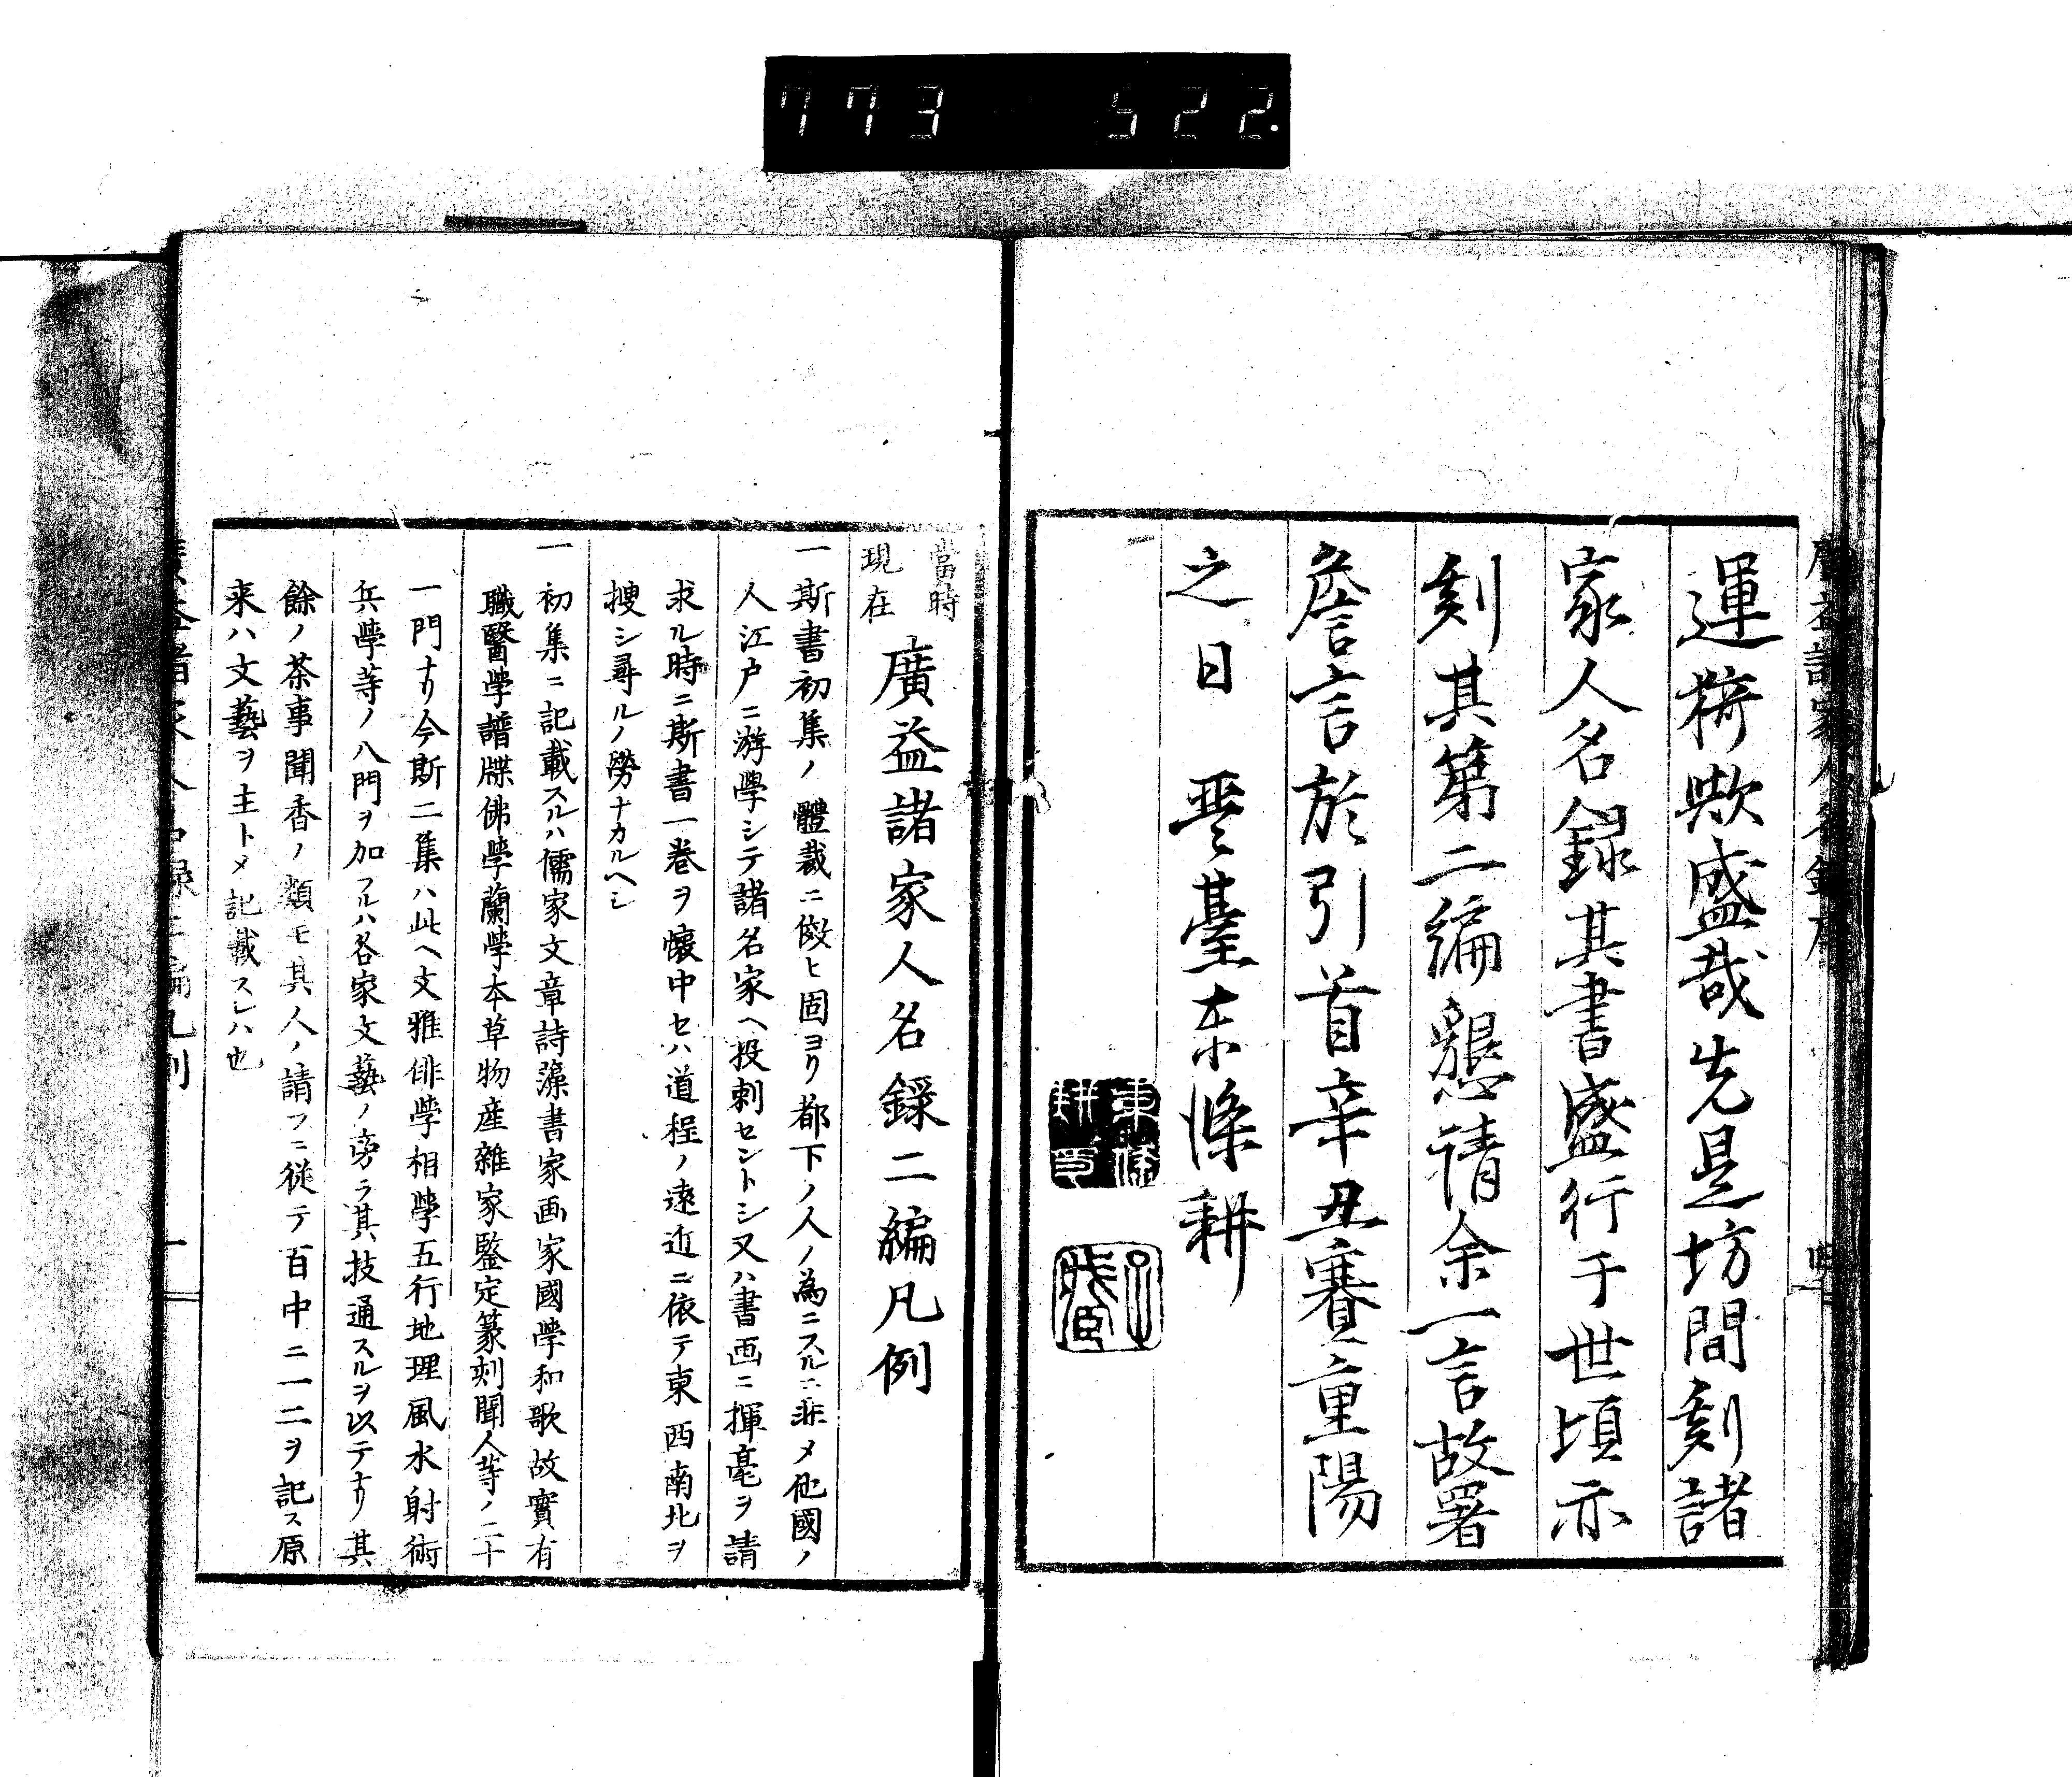 773 522.
運猗歟盛哉先是坊間刻諸
家人名録其書盛行于世頃示
刻其第二編懇請余一言故署
詹言於引首辛丑賽重陽
之日 琴臺東條耕
東條耕印
當時
現在
廣益諸家人名録二編凡例
一斯書初集ノ體裁ニ倣ヒ固ヨリ都下ノ人ノ為ニスルニ非メ他國ノ
人江戸ニ游學シテ諸名家ヘ投刺セントシ又ハ書画ニ揮毫ヲ請
求ル時ニ斯書一巻ヲ懷中セハ道程ノ遠近ニ依テ東西南北ヲ
捜シ尋ルノ勞ナカルヘシ
一初集ニ記載スルハ儒家文章詩藻書家画家國學和歌故實有
職醫學譜牒佛學蘭學本草物産雜家鑒定篆刻聞人等ノ二十
一門ナリ今斯二集ハ此ヘ文雅俳学相學五行地理風水射術
兵學等ノ八門ヲ加フルハ各家文藝ノ旁ラ其技通スルヲ以テナリ其
餘ノ茶事聞香ノ類モ其人ノ請フニ従テ百中ニ一二ヲ記ス原
来ハ文藝ヲ主トメ記載スレハ也